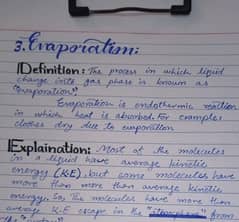 3. Evaporation:
Definition: The process in which liquid
change into gas phase is known as
"evaporation"
Evaporation is endothermic reaction
in which heat is absorbed. For examples
clothes dry due to evaporation
Explaination: Most of the molecules
in a liquid have average kinetic
energy (K.E). but some molecules have
more than more than average kinetic
energy. So, The molecules have more than
average K.E escape in the atmosphere from